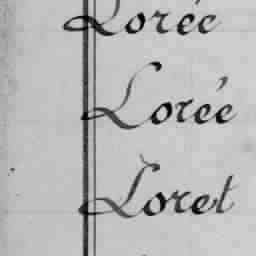 Lorée
Lorée
Loret